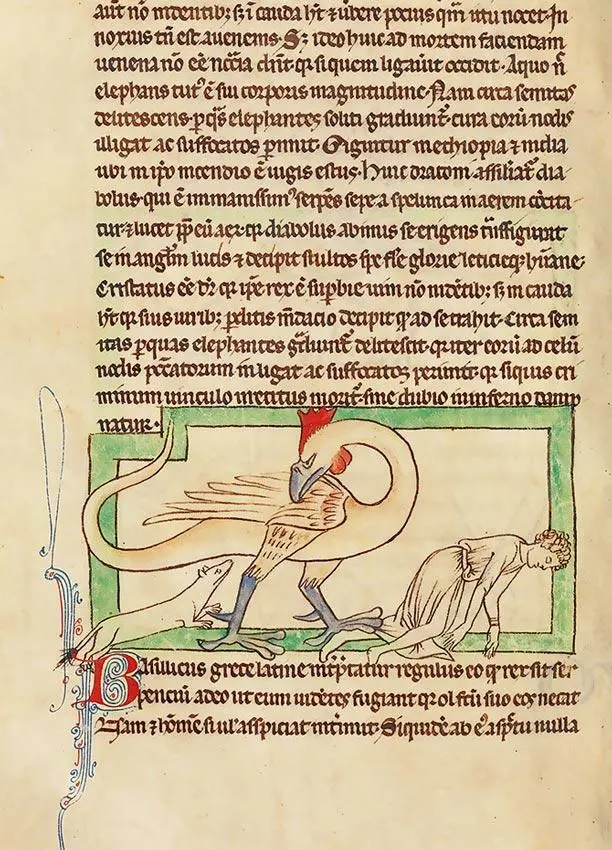 aut nō indentib; sꝫ ī cauda hꝫ ⁊ ubere pocius qm̄ ictu nocet. In
noxius tn̄ est a uenenis. Sꝫ ideo huic ad mortem faciendam
uenena nō eē nccia dn̄t. qꝛ si quem ligauit occidit. A quo n̄
elephans tut' ē sui corporis magnitudine. Nam circa semitas
delitescens. ꝑ q̄s elephantes soliti gradiunt᷑. crura eoꝝ nodis
illigat ac suffocatos ꝑimit. Gignitur in ethiopia ⁊ india
ubi in ip̄o incendio ē iugis estus. Huic draconi assiliat᷑ dia
bolus. qui ē immanissim' serpēs. sepe a spelunca in aerem cōcita
tur ⁊ lucet ꝓp̄ eū aer. qꝛ diabolus ab imis se erigens tn̄sfigurat
se in angl̄m lucis ⁊ decipit stultos spe fl̄se glorie leticieqꝫ hūane.
Cristatus eē dr̄ qꝛ ip̄e rex ē superbie uim nō in dētib; sꝫ in cauda
hꝫ. qꝛ suis uirib; ꝑditis m̄dacio decipit qͦs ad se trahit. Circa sem
itas ꝑ quas elephantes gͣdiunt᷑ delitescit. qꝛ iter eoꝝ ad celū
nodis pcc̄atorum illigat ac suffocatos perimit. qꝛ siquis cri
minum uinculo irretitus morit᷑. sine dubio in inferno damp
natur.
Basiliscus grece latine int̄p̄tatur regulus eo qꝛ rex sit ser
pencium adeo ut eum uidētes fugiant qꝛ olfc̄tu suo eos necat
Nam ⁊ hōinē si uel aspiciat intimit. Siquidē ab ei' asp̄tu nulla